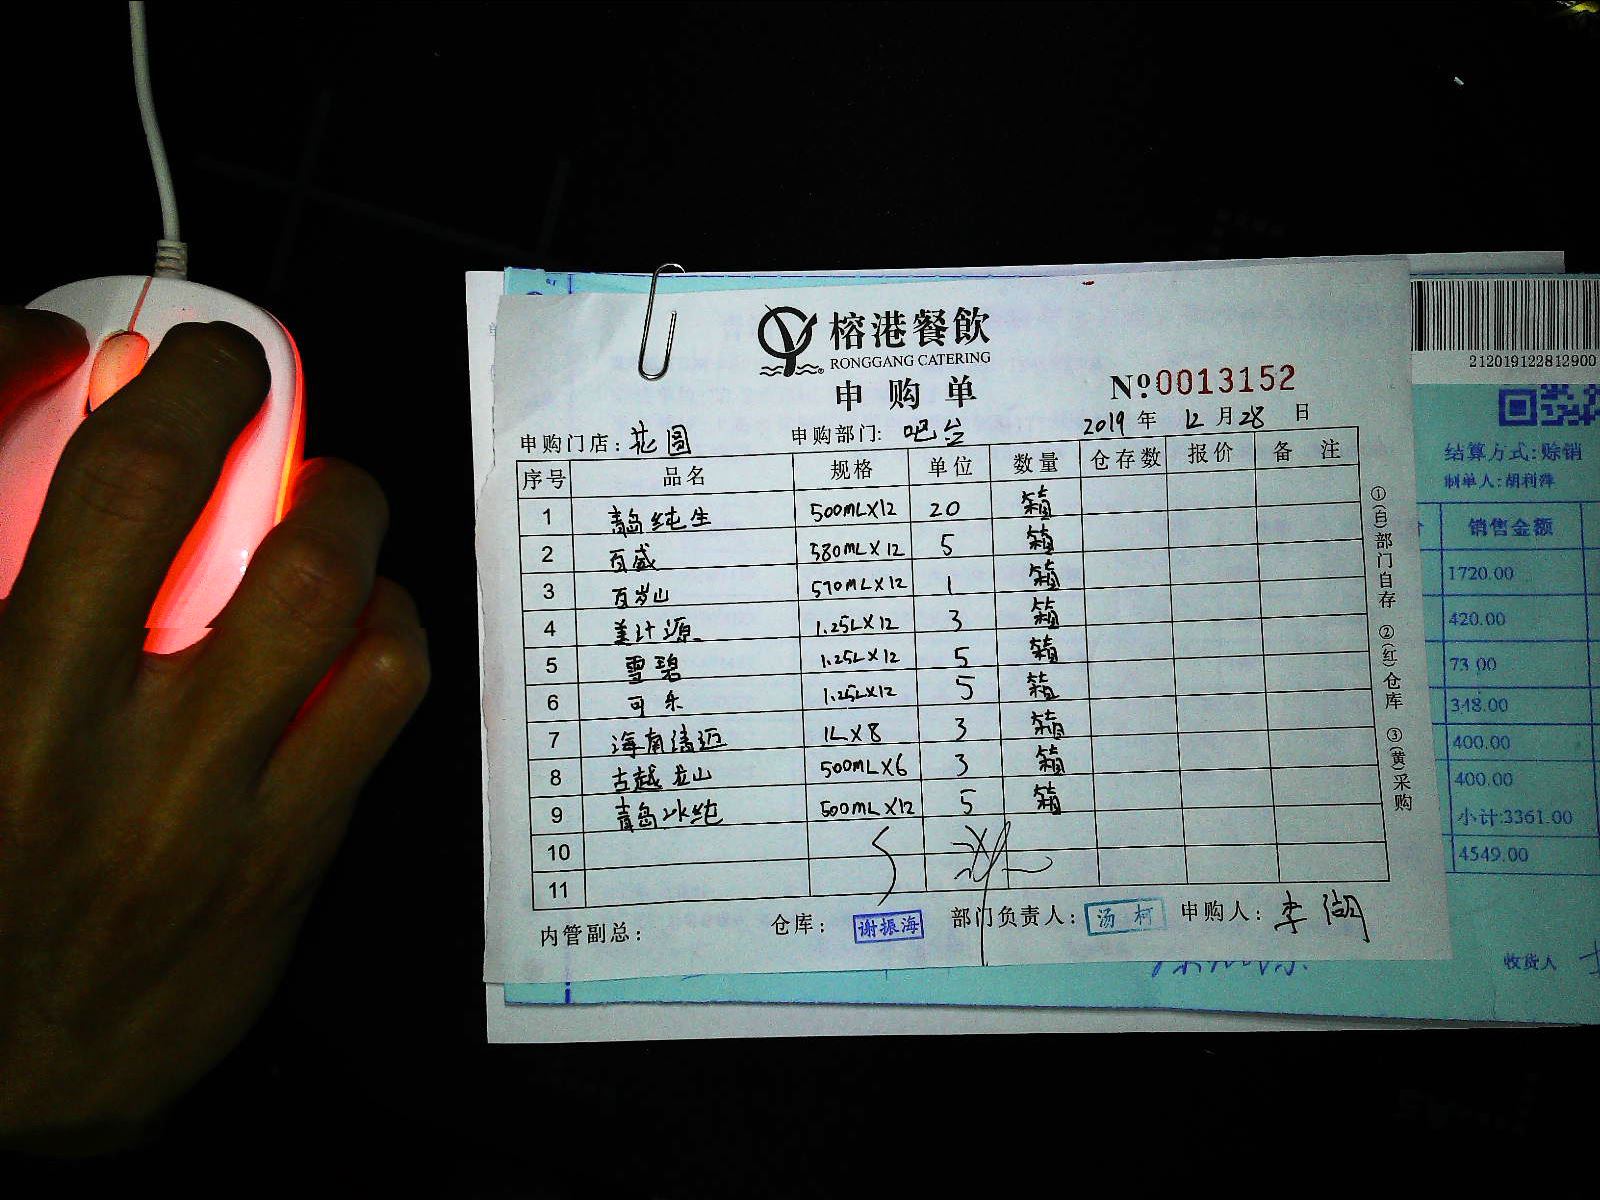 榕港餐飲
RONGGANG CATERING
申购单
№0013152
申购门店:花园 申购部门:吧台 2019年12月28日
序号 品名 规格 单位 数量 仓存数 报价 备注
1 青岛纯生 500mL×12 20 箱
2 百威 580mL×12 5 箱
3 百岁山 570mL×12 1 箱
4 美汁源 1.25L×12 3 箱
5 雪碧 1.25L×12 5 箱
6 可乐 1.25L×12 5 箱
7 海南 1L×8 3 箱
8 古越龙山 500mL×6 3 箱
9 青岛冰纯 500mL×12 5 箱
10
11
内管副总: 仓库:谢振海 部门负责人:汤柯 申购人:李湖
①(白)部门自存 ②(红)仓库 ③(黄)采购
212019122812900
结算方式:赊销
制单人:胡利萍
销售金额
1720.00
420.00
73.00
348.00
400.00
400.00
小计:3361.00
4549.00
收货人